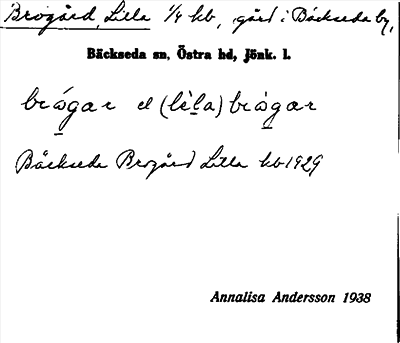 Brogård, Lilla 1/4 hb, gård i Bäckseda by,
Bäckseda sn, Östra hd, Jönk. l.
brógar el (lèla) brógar
Bäckseda Brogård Lilla hb 1929
Annalisa Andersson 1938